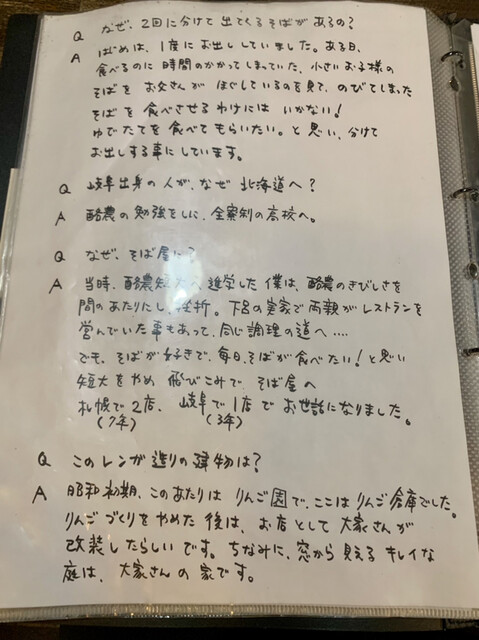 Q なぜ、2回に分けて出てくるそばがあるの?
A はじめは、1度にお出ししていました。ある日、
食べるのに時間のかかってしまっていた、小さいお子様の
そばをお父さんがほぐしているのを見て、のびてしまった
そばを食べさせるわけにはいかない!
ゆでたてを食べてもらいたい。と思い、分けて
お出しする事にしています。
Q 岐阜出身の人が、なぜ北海道へ?
A 酪農の勉強をしに、全寮制の高校へ。
Q なぜ、そば屋に?
A 当時、酪農短大へ進学した僕は、酪農のきびしさを
間のあたりにし、挫折。下呂の実家で両親がレストランを
営んでいた事もあって、同じ調理の道へ‥‥
でも、そばが好きで、毎日、そばが食べたい!と思い
短大をやめ 飛びこみで、そば屋へ
札幌で2店、岐阜で1店でお世話になりました。
(7年) (3年)
Q このレンガ造りの建物は?
A 昭和初期、このあたりはりんご園で、ここはりんご倉庫でした。
りんごづくりをやめた後は、お店として大家さんが
改装したらしいです。ちなみに、窓から見えるキレイな
庭は、大家さんの家です。